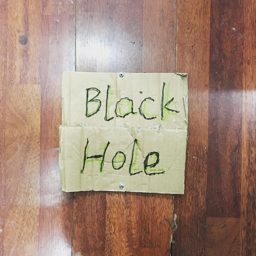 Black
Hole